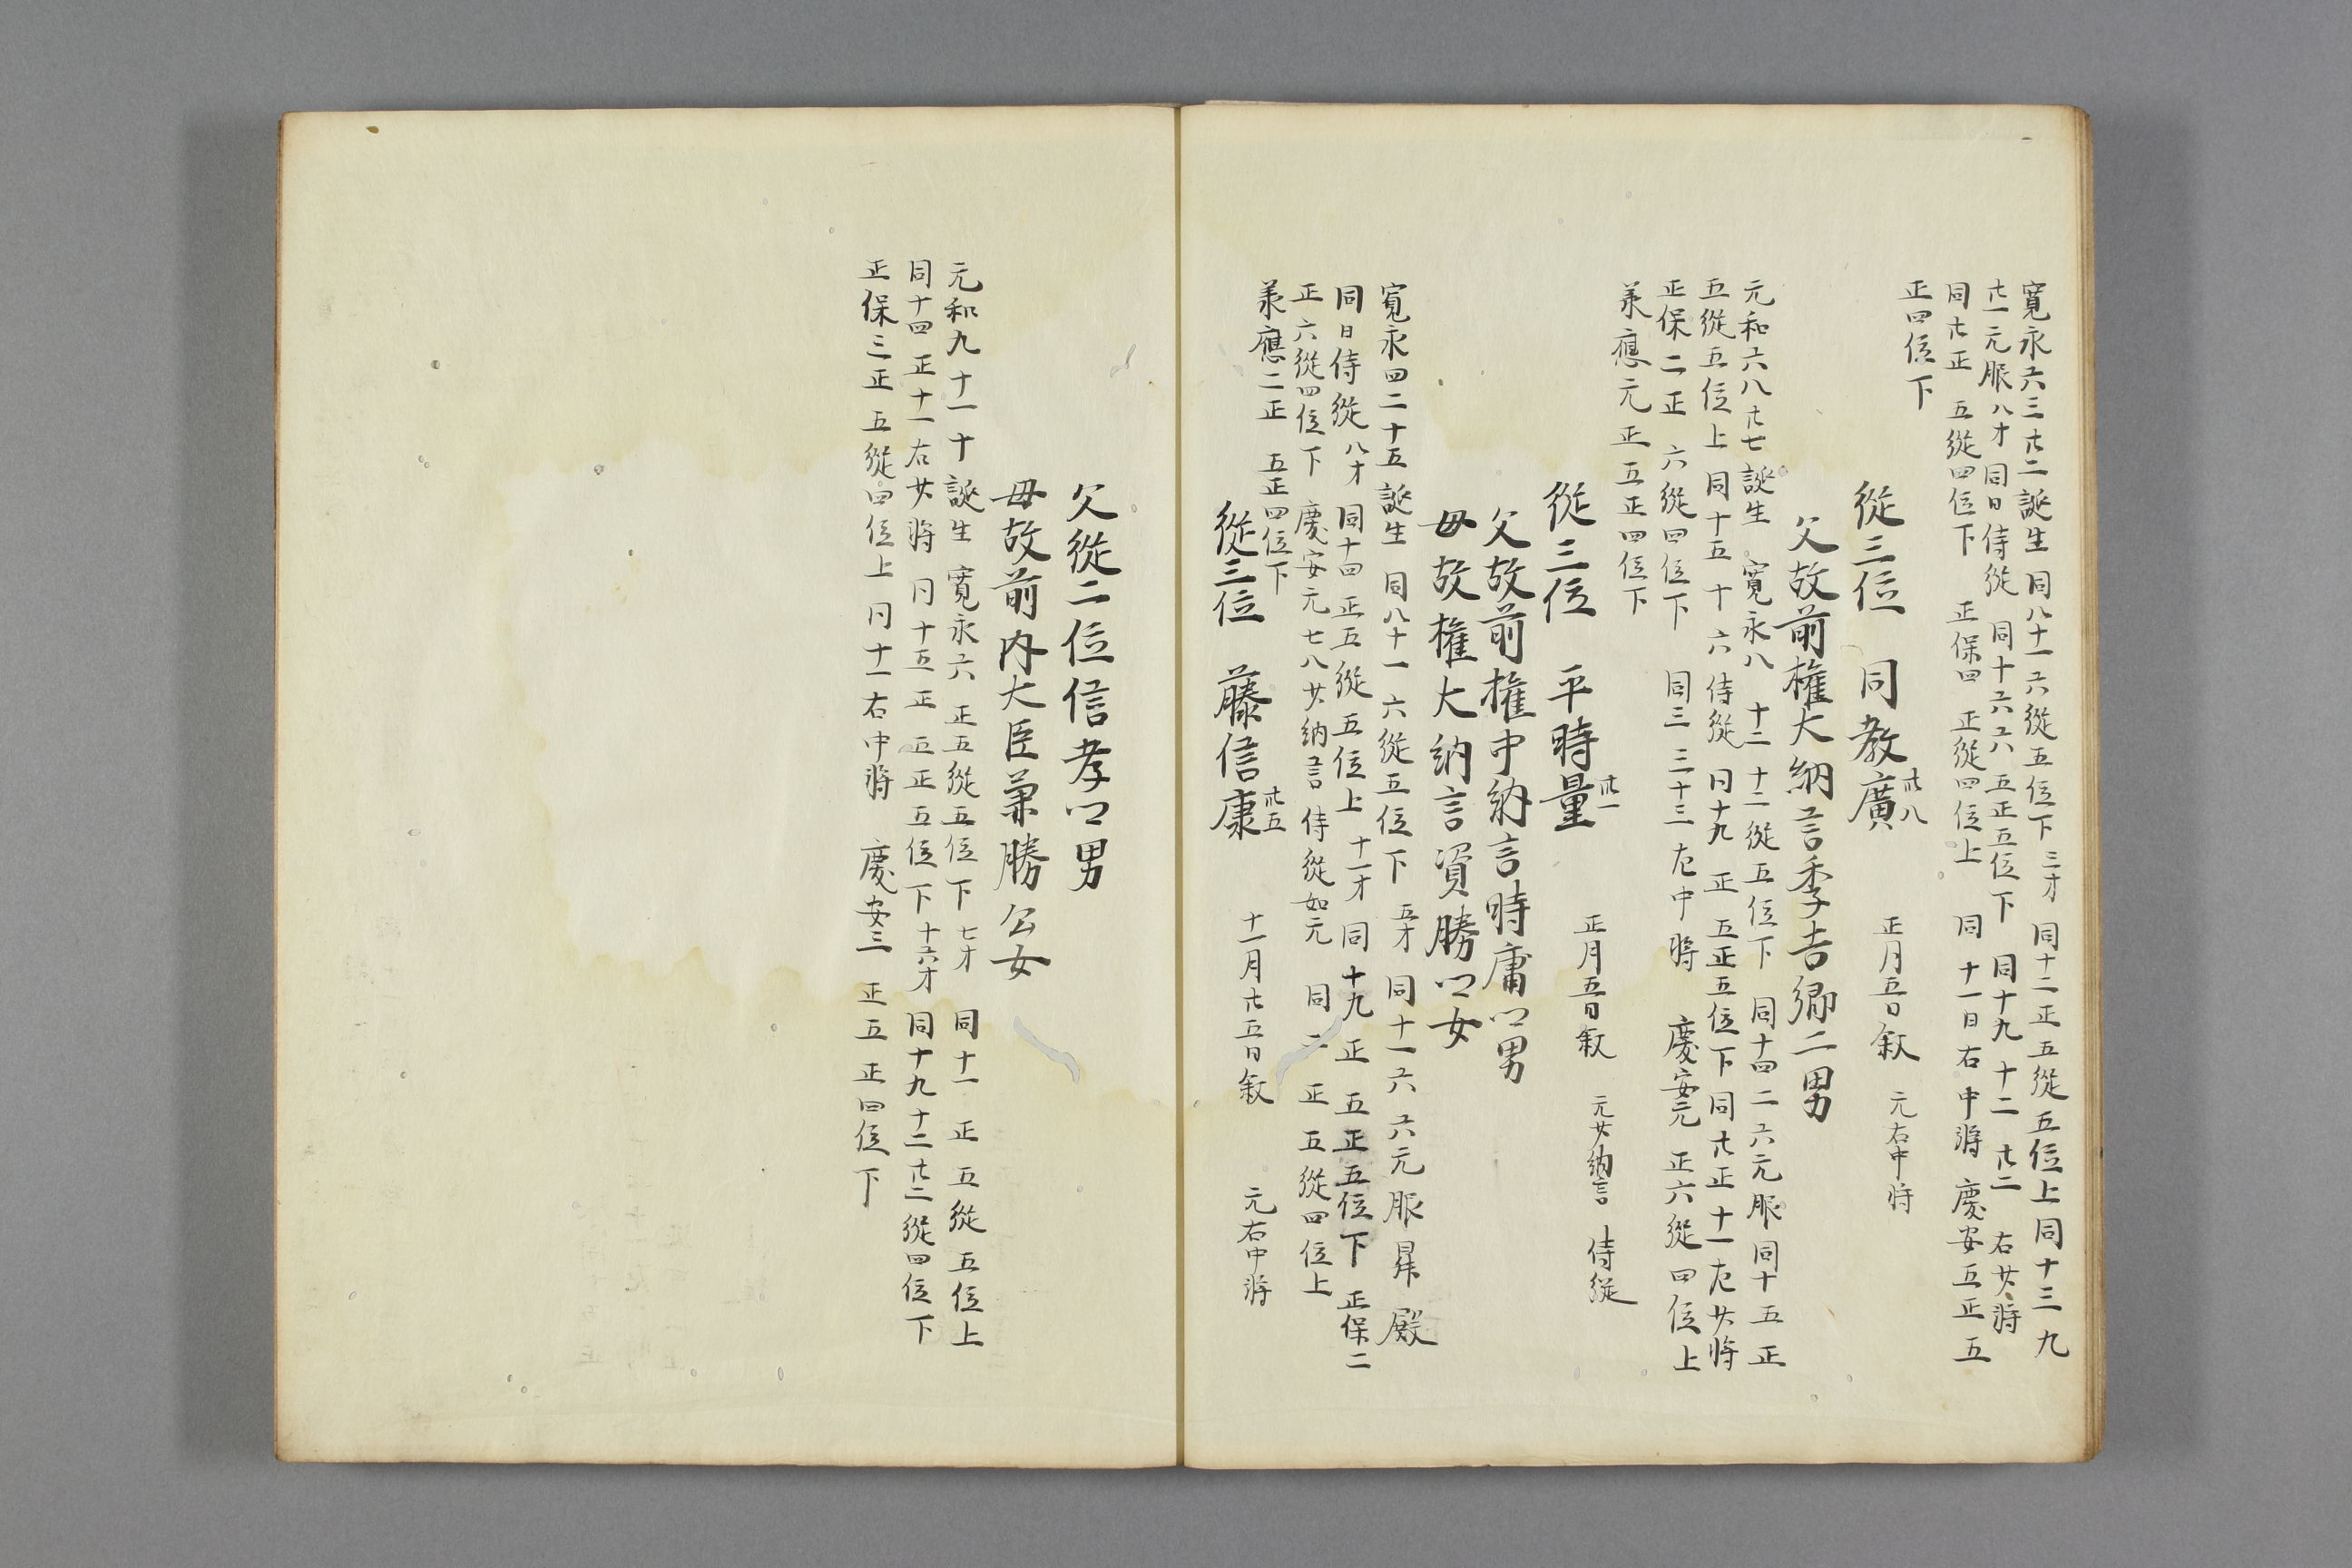 寛永六三廿二誕生 同八十一六從五位下三才 同十二正五從五位上同十三九
廿一元服八才同日侍從 同十六六八 五正五位下 同十九十二廿二 右少將
同廿正 五從四位下 正保四 正從四位上 同十一日右中將 慶安五正五
正四位下
從三位 同教廣卅八 正月五日叙 元右中将
父故前權大納言季吉卿二男
元和六八廿七誕生 寛永八 十二 十二從五位下 同十四二六元服同十五正
五從五位上同十五十六侍從 同十九正 五正五位下同廿正十一左少將
正保二正 六從四位下 同三 三十三左中將 慶安元 正六從四位上
承應元正五正四位下
從三位 平時量卅一 正月五日叙 元少納言 侍從
父故前權中納言時庸卿男
母故權大納言資勝卿女
寛永四二十五誕生 同八十一 六從五位下 五才 同十一六六元服昇殿
同日侍從八才 同十四正五從五位上十一才同十九正五正五位下正保二
正六從四位下 慶安元七八少納言侍從如元 同二正五從四位上
承應二正 五正四位下
從三位 藤信康卅五 十一月廿五日叙 元右中將
父從二位信孝卿男
母故前内大臣兼勝公女
元和九十一十誕生 寛永六 正五從五位下七才 同十一正五從五位上
同十四正十一右少將 同十五正 五正五位下十六才 同十九十二廿二從四位下
正保三正 五從四位上 同十一右中將 慶安三 正五 正四位下